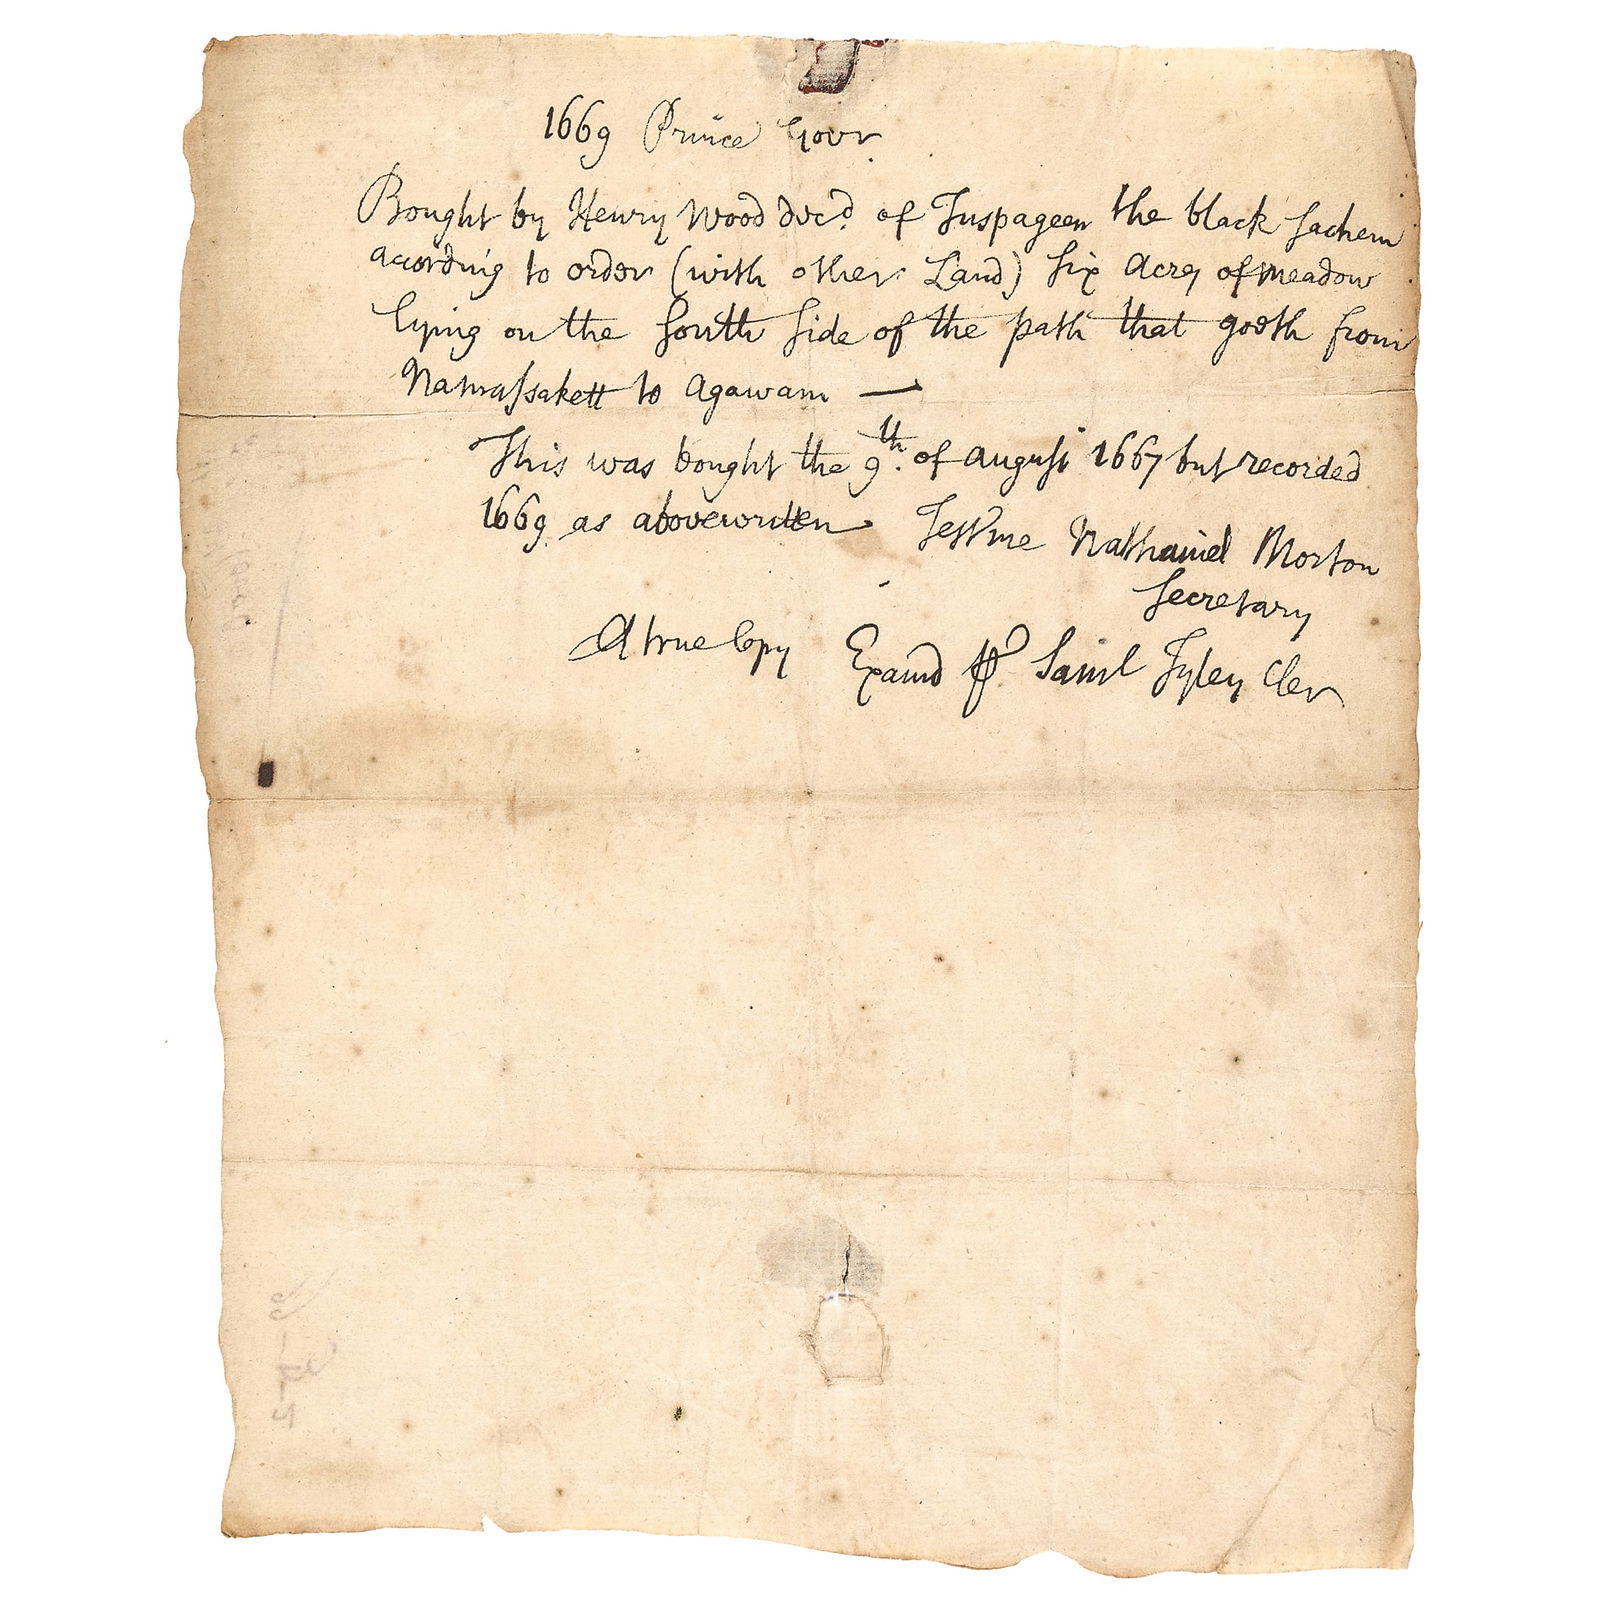 1669 Prince Govr.
Bought by Henry Wood decd. of Tuspageen the black sachem
according to order (with other Land) six Acres of meadow
lying on the south side of the path that goeth from
Namassakett to Agawam —
This was bought the 9th. of august 1667 but recorded
1669 as abovewritten Test me Nathaniel Morton
Secretary
A true Copy Examd ⅌ Saml Tyley Cler